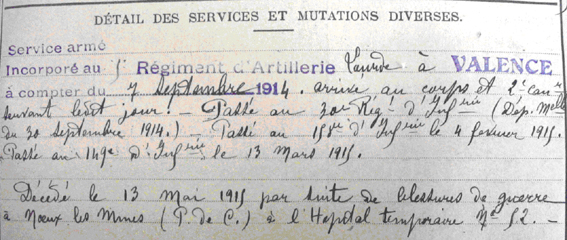 DÉTAIL DES SERVICES ET MUTATIONS DIVERSES.
Service armé
Incorporé au Régiment d'Artillerie Lourde à VALENCE
à compter du 7 Septembre 1914. arrivé au corps et 2e can
suivant ledit jour. - Passé au 30e Rég. d'Infrie (Dép. Melle
du 30 Septembre 1914.) - Passé au d'Infrie le 4 février 1915.
Passé au 149e d'Infrie le 13 Mars 1915.
Décédé le 13 Mai 1915 par suite de blessures de guerre
à Nœux les Mines (P. de C.) à l'Hôpital temporaire No 52. -